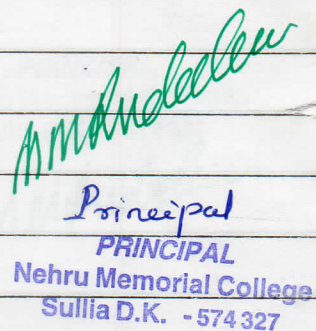 Principal
PRINCIPAL
Nehru Memorial College
Sullia D.K. - 574 327